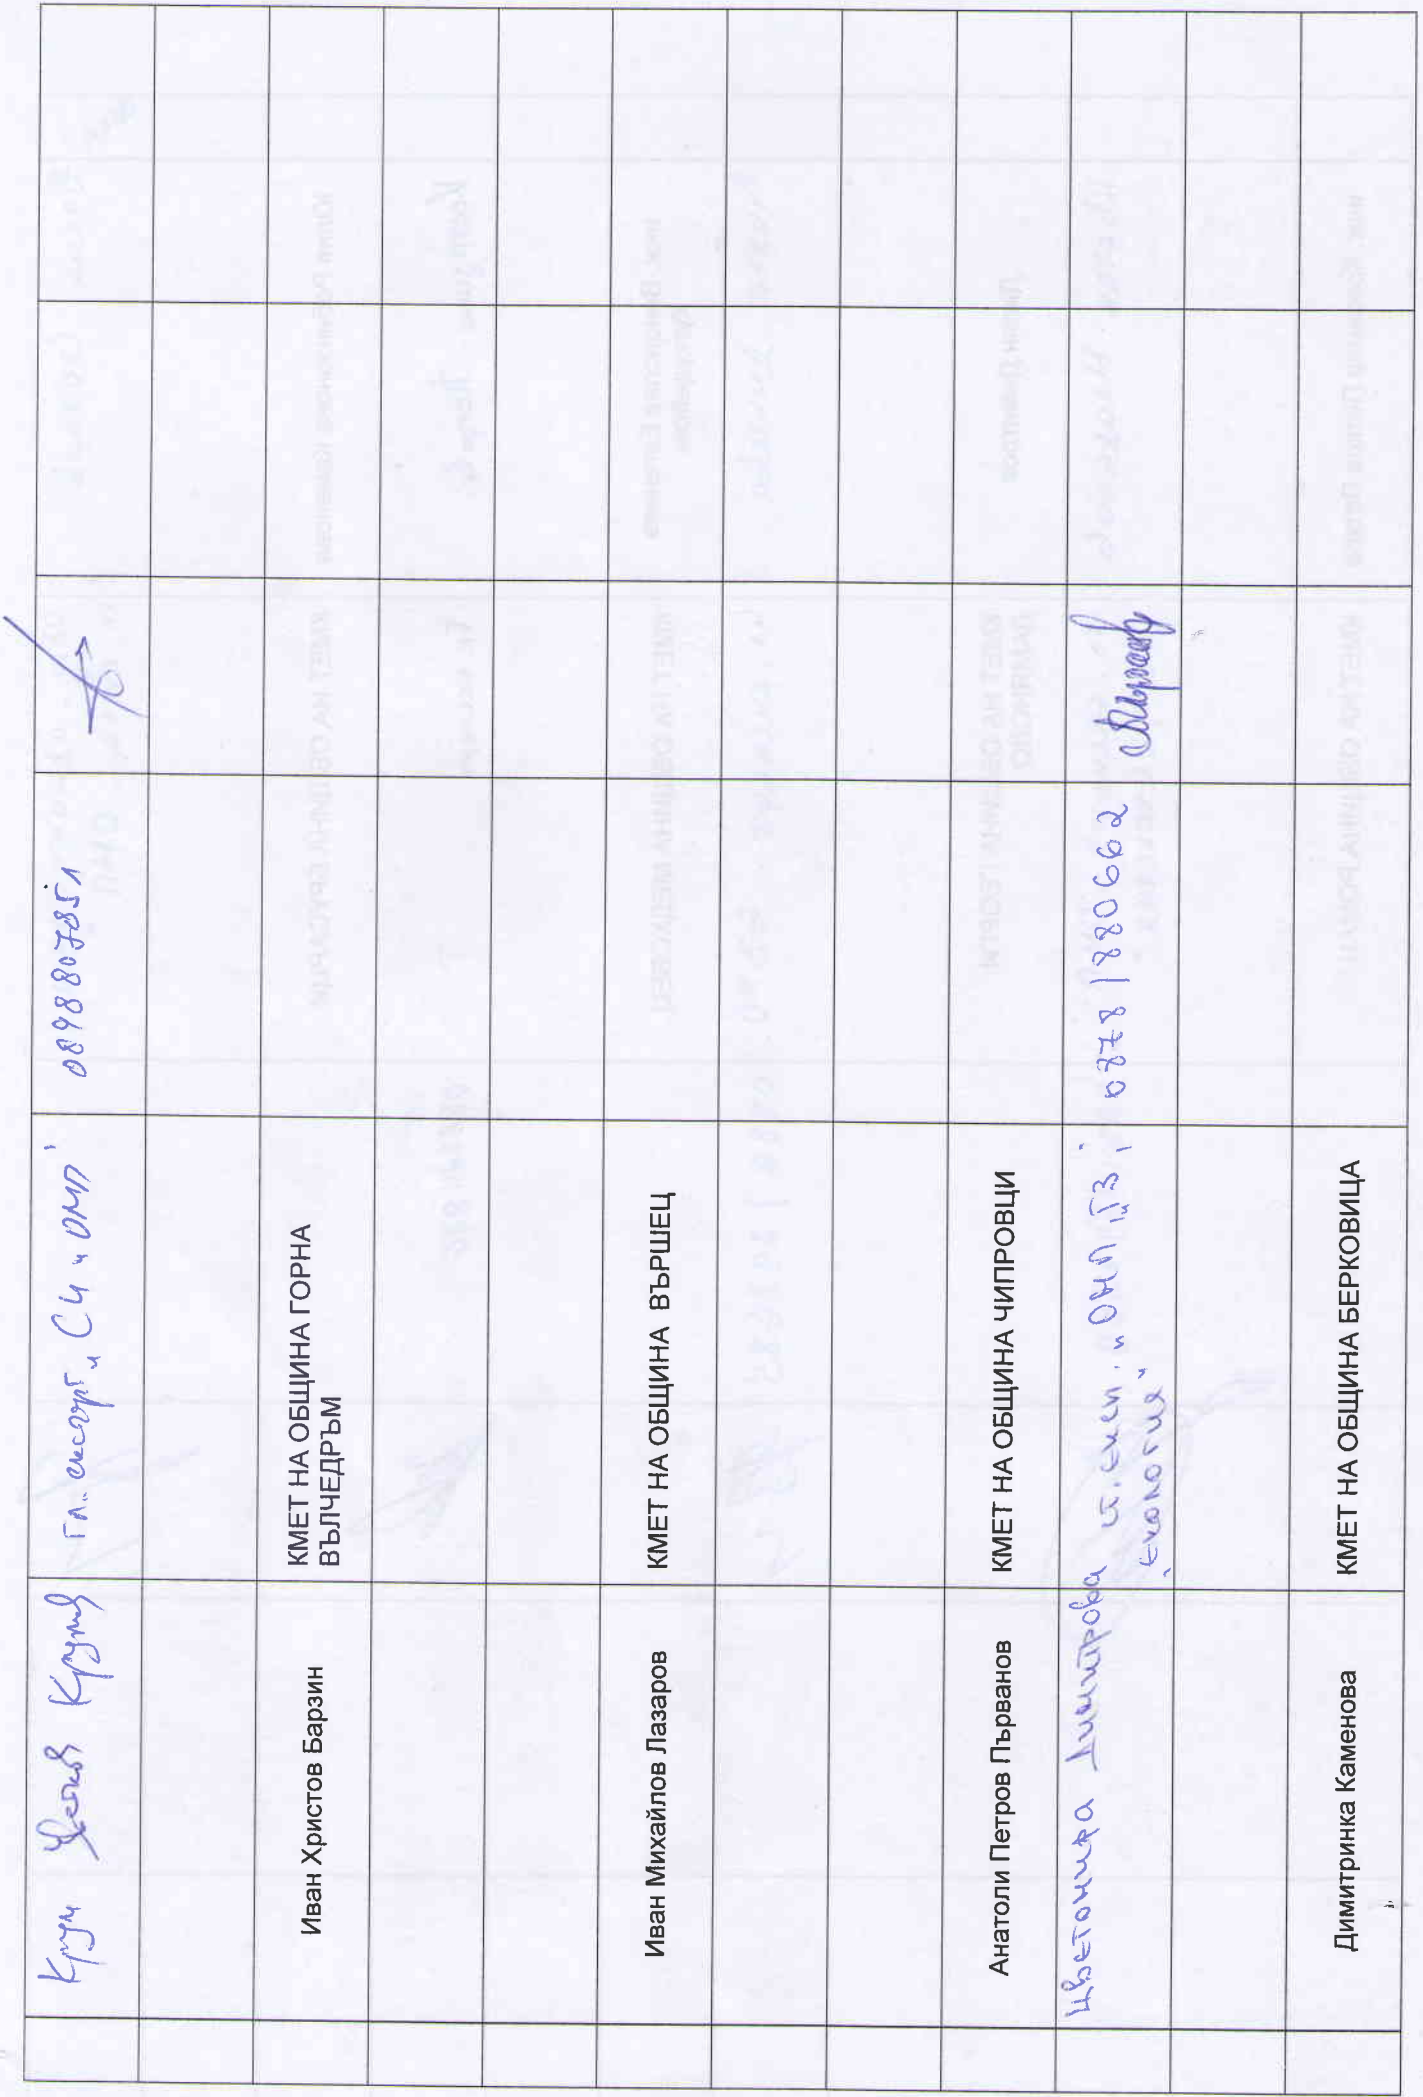 Крум Цеков Крумов гл. експерт „СИ и ОМП" 0898807851
Иван Христов Барзин КМЕТ НА ОБЩИНА ГОРНА
ВЪЛЧЕДРЪМ
Иван Михайлов Лазаров КМЕТ НА ОБЩИНА ВЪРШЕЦ
Анатоли Петров Първанов КМЕТ НА ОБЩИНА ЧИПРОВЦИ
Цветомира Димитрова 0878/880662
екология"
Димитринка Каменова КМЕТ НА ОБЩИНА БЕРКОВИЦА